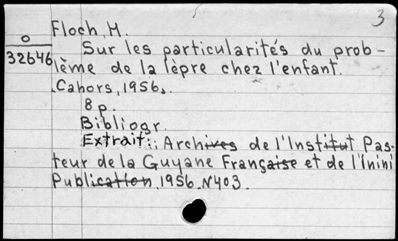 3
Floch, H.
O
32646
Sur les particularités du prob-
lème de la lèpre chez l'enfant.
Cahors, 1956.
8 p.
Bibliogr.
Extrait: Archives de l'Institut Pas-
teur de la Guyane Française et de l'Inini
Publication, 1956. N403.